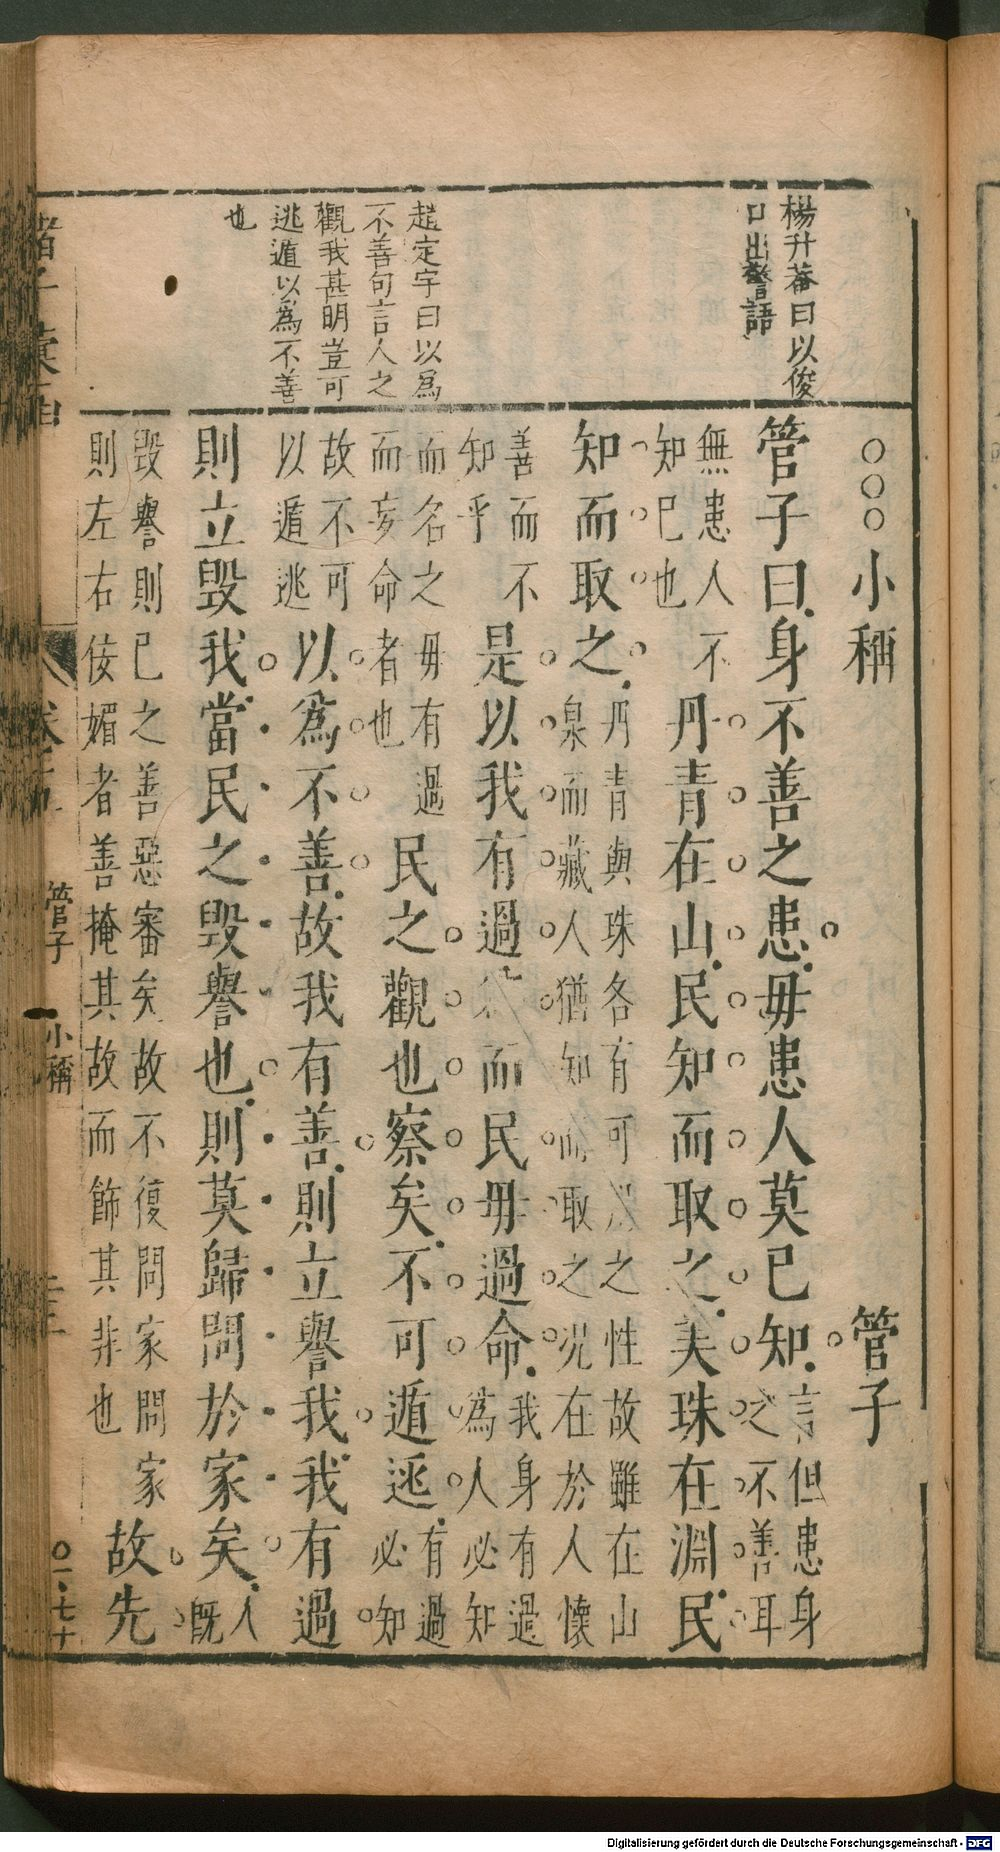 楊升菴曰以俊
口出警語
趙定宇曰以為
不善句言人之
觀我甚明豈可
逃遁以為不善
也
○○○小稱　管子
管子曰身不善之患毋患人莫已知言但患身之不善耳
無患人不知已也丹青在山民知而取之美珠在淵民
知而取之丹青與珠各有可之性故雖在山泉而藏人猶知而取之况在於人懷
善而不知乎是以我有過而民毋過命我身有過為人必知
而名之毋有過而妄命者也民之觀也察矣不可遁逃有過必知
故不可以遁逃以為不善故我有善則立譽我我有過
則立毀我當民之毀譽也則莫歸問於家矣人既
毀譽則已之善惡審矣故不復問家問家則左右佞媚者善掩其故而飾其非也故先
管子　小稱
Digitalisierung gefördert durch die Deutsche Forschungsgemeinschaft - DFG